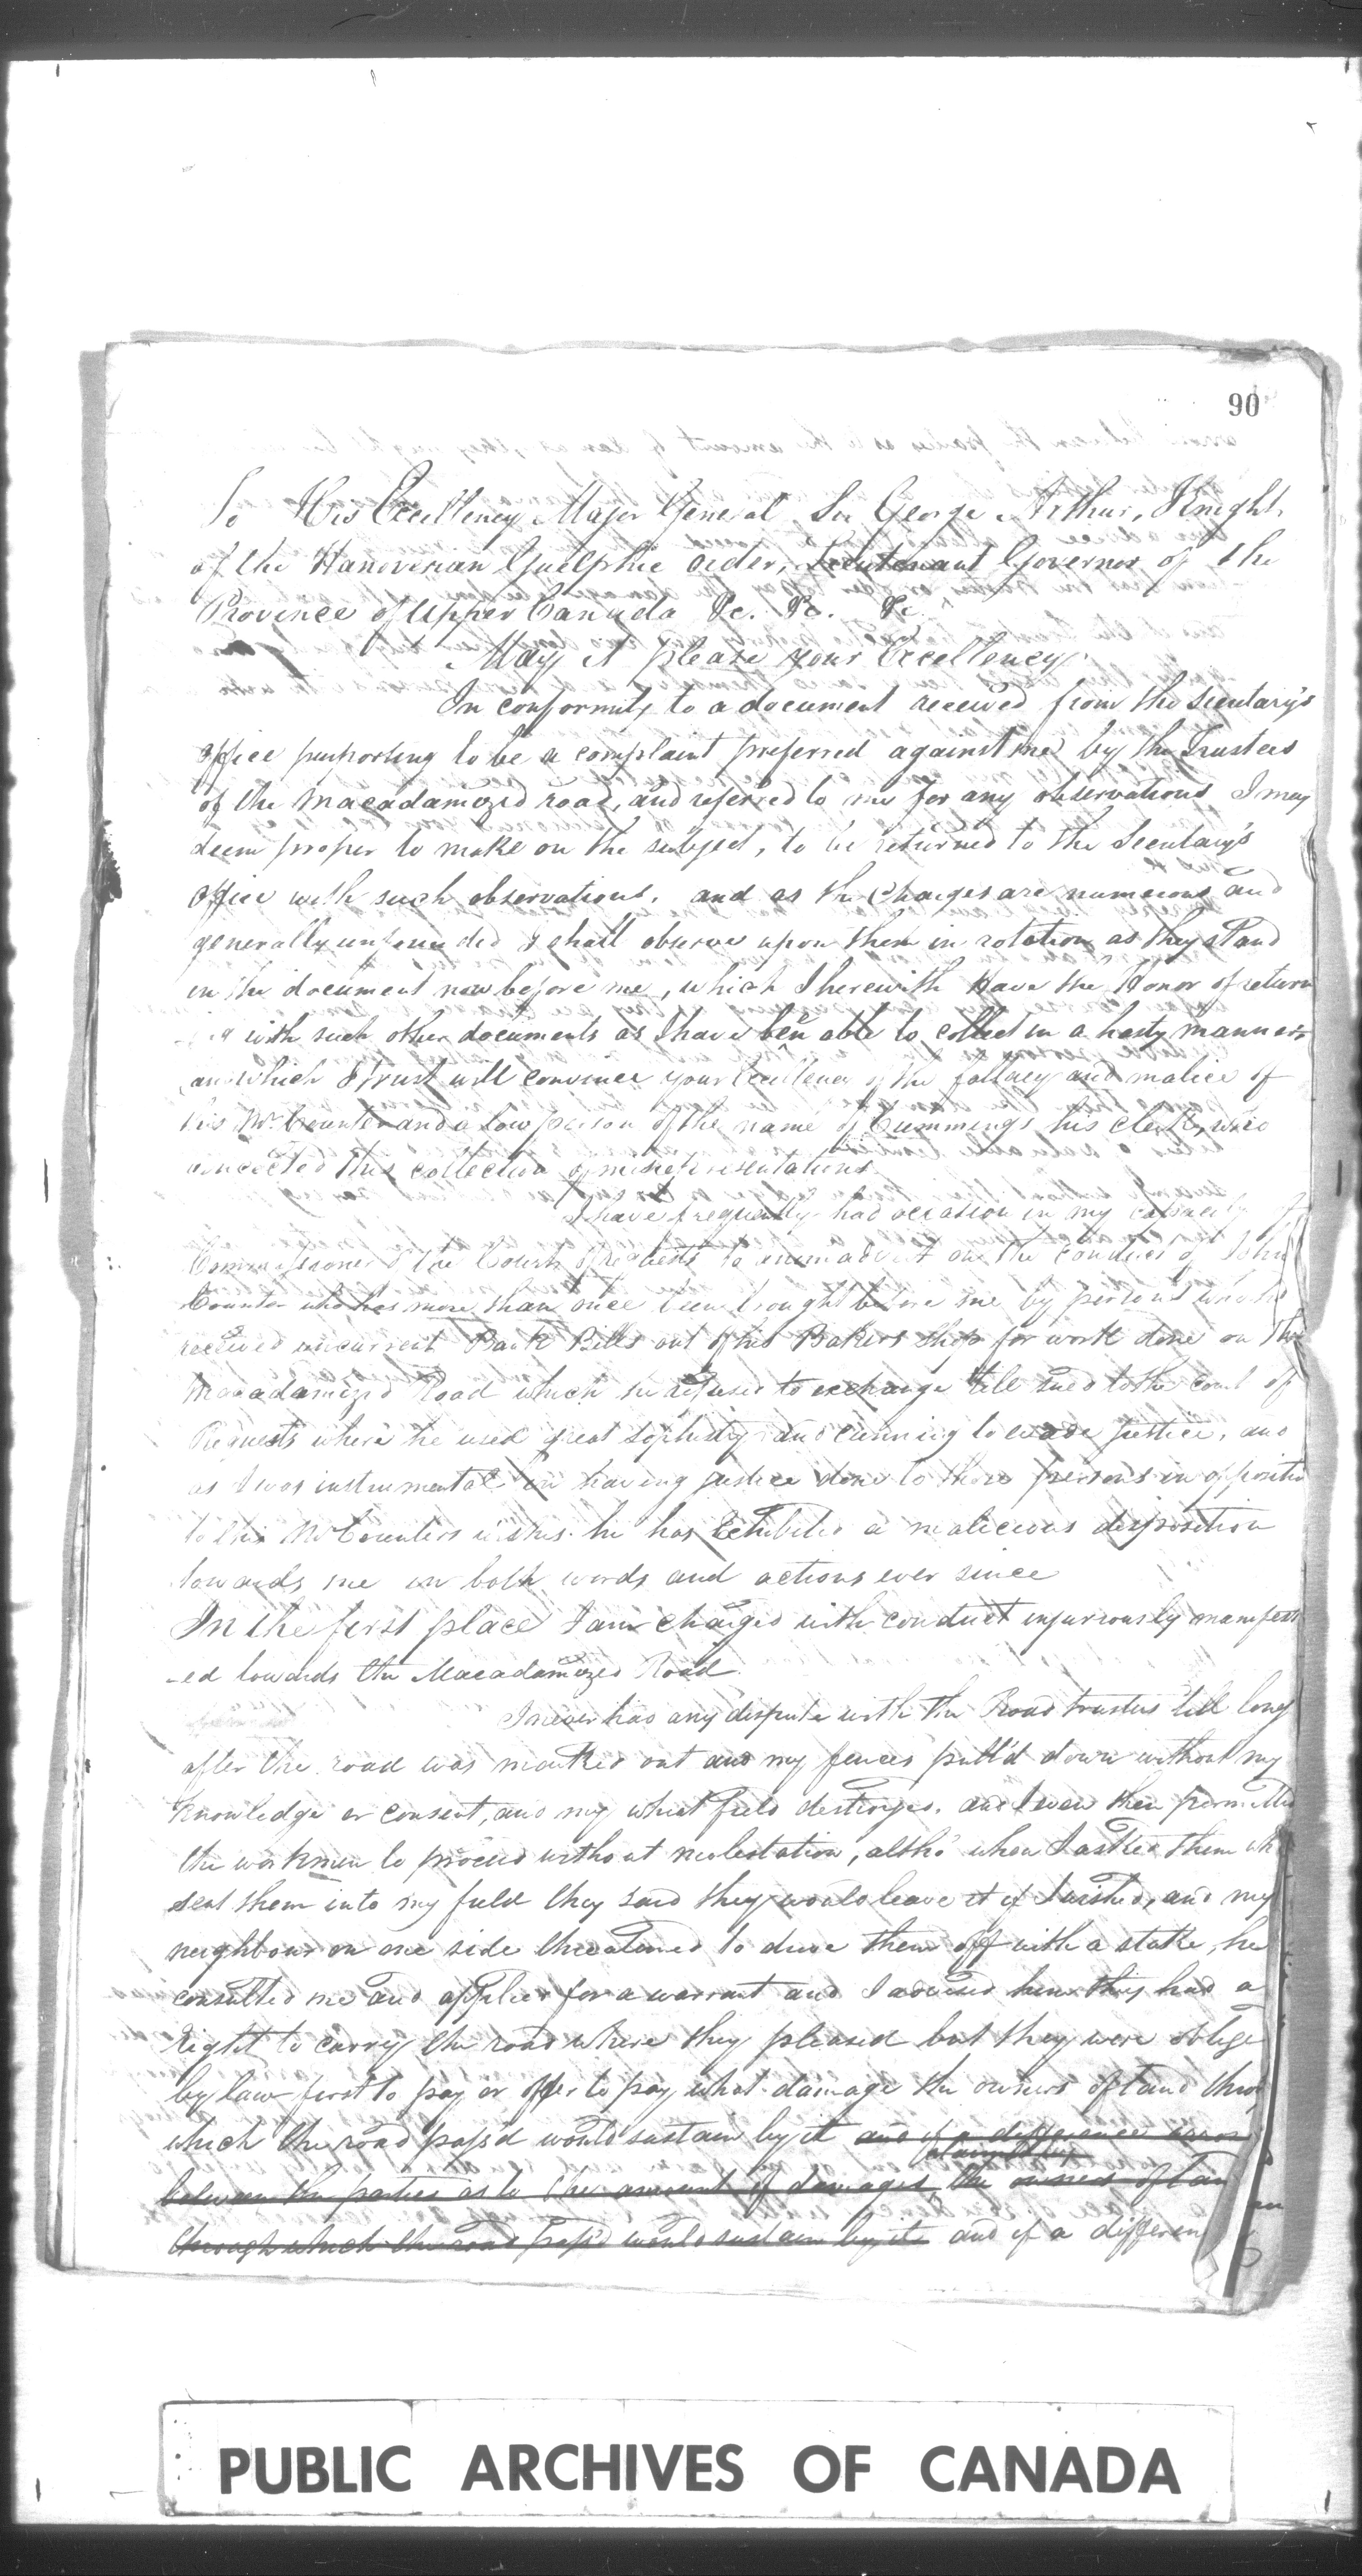 90
To His Excellency Major General Sir George Arthur, Knight
of the Hanoverian Guelphic order, Lieutenant Governor of the
Province of Upper Canada &c. &c. &c.
May it please your Excellency
In conformity to a document received from the Secretary's
office purporting to be a complaint preferred against me by the Trustees
of the Macadamized road, and referred to me for any observations I may
deem proper to make on the subject, to be returned to the Secretary's
office with such observations. and as the Charges are numerous and
generally unfounded I shall observe upon them in rotation as they stand
in the document now before me, which I herewith Have the Honor of return
with such other documents as I have been able to collect in a hasty manner
and which I trust will convince your Excellency of the fallacy and malice of
this Mr. Counter and a low person of the name of Cummings his Clerk, who
concocted this collection of misrepresentations
I have frequently had occasion in my capacity of
Commissioner of the Court of Requests to animadvert on the conduct of John
Counter who has more than once been brought before me by persons who
received uncurrent Bank Bills out of his Bakers Shop for work done on the
Macadamized Road which he refused to exchange till sued to the court of
Requests where he used great sophistry and cunning to evade justice, and
as I was instrumental in having justice done to those persons in oppositi
to this Mr Counters wishes he has Exhibited a malicious disposition
towards me in both words and actions ever since
In the first place I am charged with conduct injuriously manifest
-ed towards the Macadamized Road
I never had any dispute with the Road trustees till long
after the road was marked out and my fences pull'd down without my
knowledge or consent, and my wheat field destroyed. and I even then permitted
the workmen to proceed without molestation, altho' when I asked them wh
sent them into my field they said they would leave it if I wished, and my
neighbour on one side threatened to drive them off with a stake, he
consulted me and applied for a warrant and I advised him they had a
right to carry the road where they pleased but they were oblige
by law first to pay or offer to pay what damage the owners of land thro
which the road pass'd would sustain by it and if a difference arose
between the parties as to the amount of damages the owners of lan
through which the road pass'd would sustain by it and if a differen
PUBLIC ARCHIVES OF CANADA